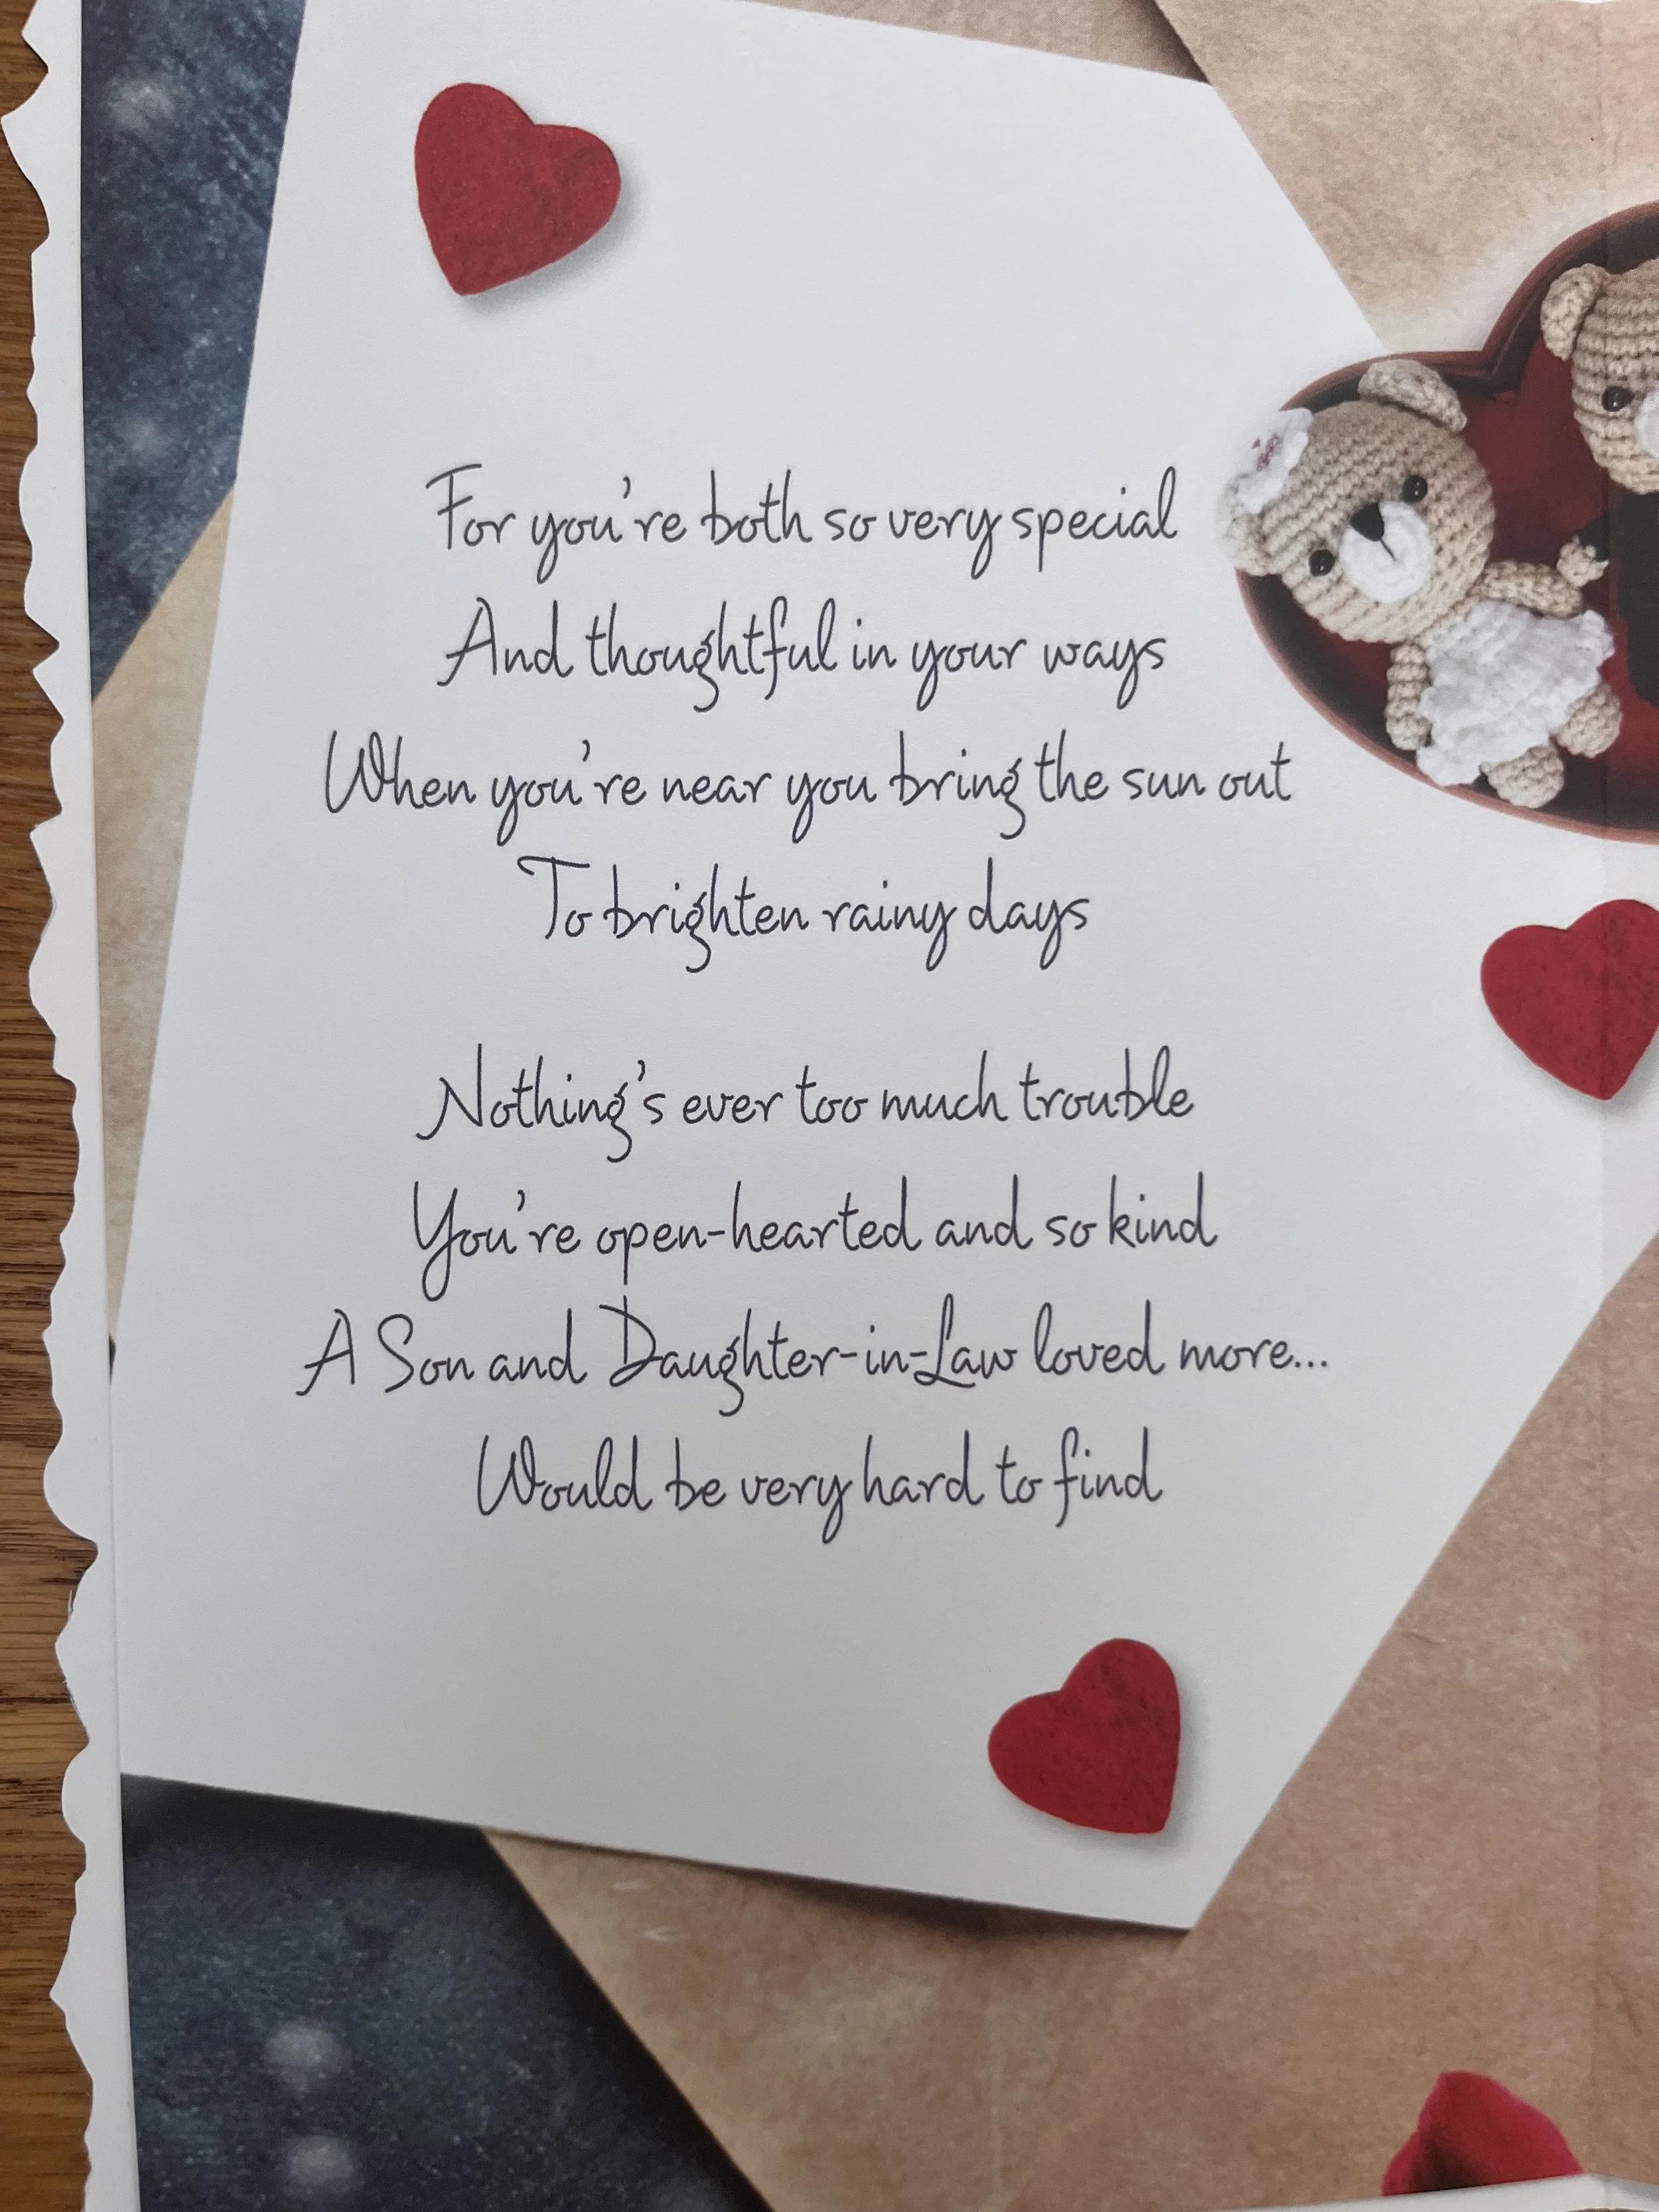 For you're both so very special
And thoughtful in your ways
When you're near you bring the sun out
To brighten rainy days
Nothing's ever too much trouble
You're open-hearted and so kind
A Son and Daughter-in-Law loved more...
Would be very hard to find